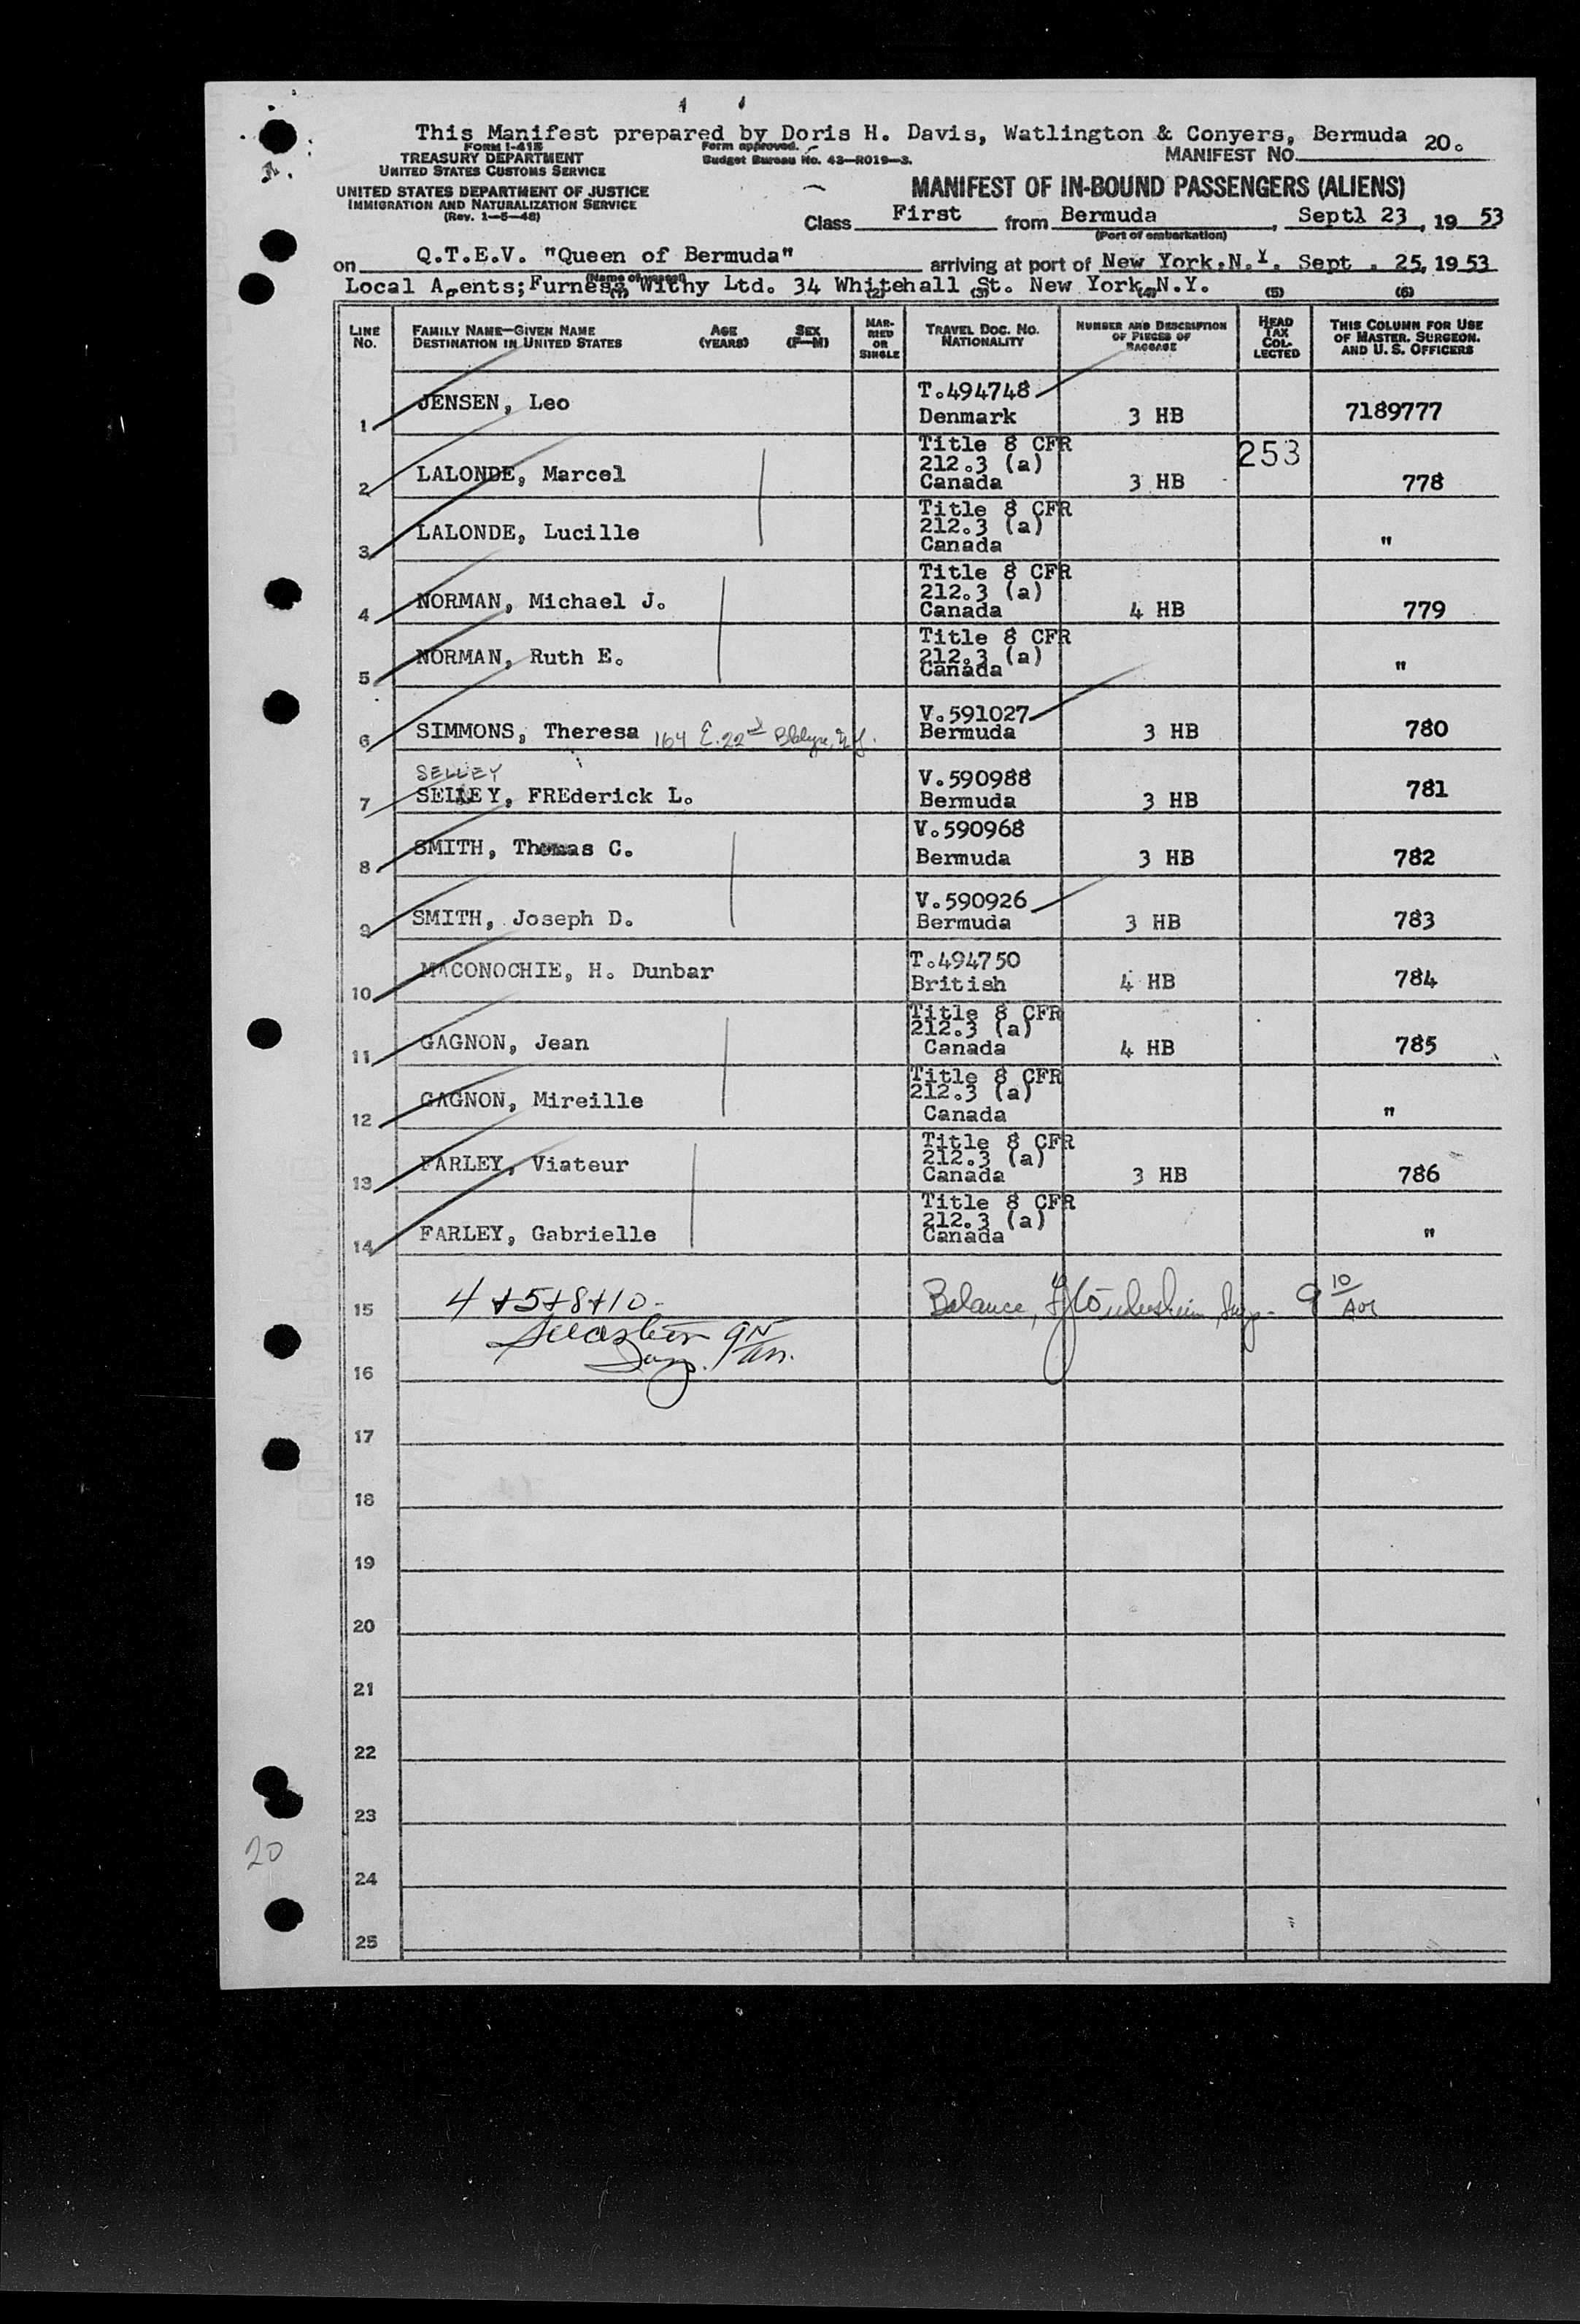 This Manifest prepared by Doris H. Davis, Watlington & Conyers, Bermuda 20.
FORM I-418
TREASURY DEPARTMENT
UNITED STATES CUSTOMS SERVICE
UNITED STATES DEPARTMENT OF JUSTICE
IMMIGRATION AND NATURALIZATION SERVICE
(Rev. 1-5-48)
Form approved.
Budget Bureau No. 43-R019-3.
MANIFEST NO.
MANIFEST OF IN-BOUND PASSENGERS (ALIENS)
Class First from Bermuda, Septl 23, 19 53
(Port of embarkation)
on Q.T.E.V. "Queen of Bermuda" arriving at port of New York.N.Y. Sept . 25, 19 53
(Name of vessel)
Local Agents;Furness Withy Ltd. 34 Whitehall St. New York N.Y.
(1) (2) (3) (4) (5) (6)
LINE NO. FAMILY NAME—GIVEN NAME DESTINATION IN UNITED STATES AGE (YEARS) SEX (F—M) MARRIED OR SINGLE TRAVEL DOC. NO. NATIONALITY NUMBER AND DESCRIPTION OF PIECES OF BAGGAGE HEAD TAX COLLECTED THIS COLUMN FOR USE OF MASTER, SURGEON, AND U. S. OFFICERS
1 JENSEN, Leo T.494748 Denmark 3 HB 7189777
2 LALONDE, Marcel Title 8 CFR 212.3 (a) Canada 3 HB 253 778
3 LALONDE, Lucille Title 8 CFR 212.3 (a) Canada "
4 NORMAN, Michael J. Title 8 CFR 212.3 (a) Canada 4 HB 779
5 NORMAN, Ruth E. Title 8 CFR 212.3 (a) Canada "
6 SIMMONS, Theresa 164 E. 22nd V.591027 Bermuda 3 HB 780
SELLEY
7 SELLEY, FREderick L. V.590988 Bermuda 3 HB 781
8 SMITH, Thomas C. V.590968 Bermuda 3 HB 782
9 SMITH, Joseph D. V.590926 Bermuda 3 HB 783
10 MACONOCHIE, H. Dunbar T.494750 British 4 HB 784
11 GAGNON, Jean Title 8 CFR 212.3 (a) Canada 4 HB 785
12 GAGNON, Mireille Title 8 CFR 212.3 (a) Canada "
13 FARLEY, Viateur Title 8 CFR 212.3 (a) Canada 3 HB 786
14 FARLEY, Gabrielle Title 8 CFR 212.3 (a) Canada "
15 4+5+8+10 Balance,
16
17
18
19
20
21
22
23
20
24
25